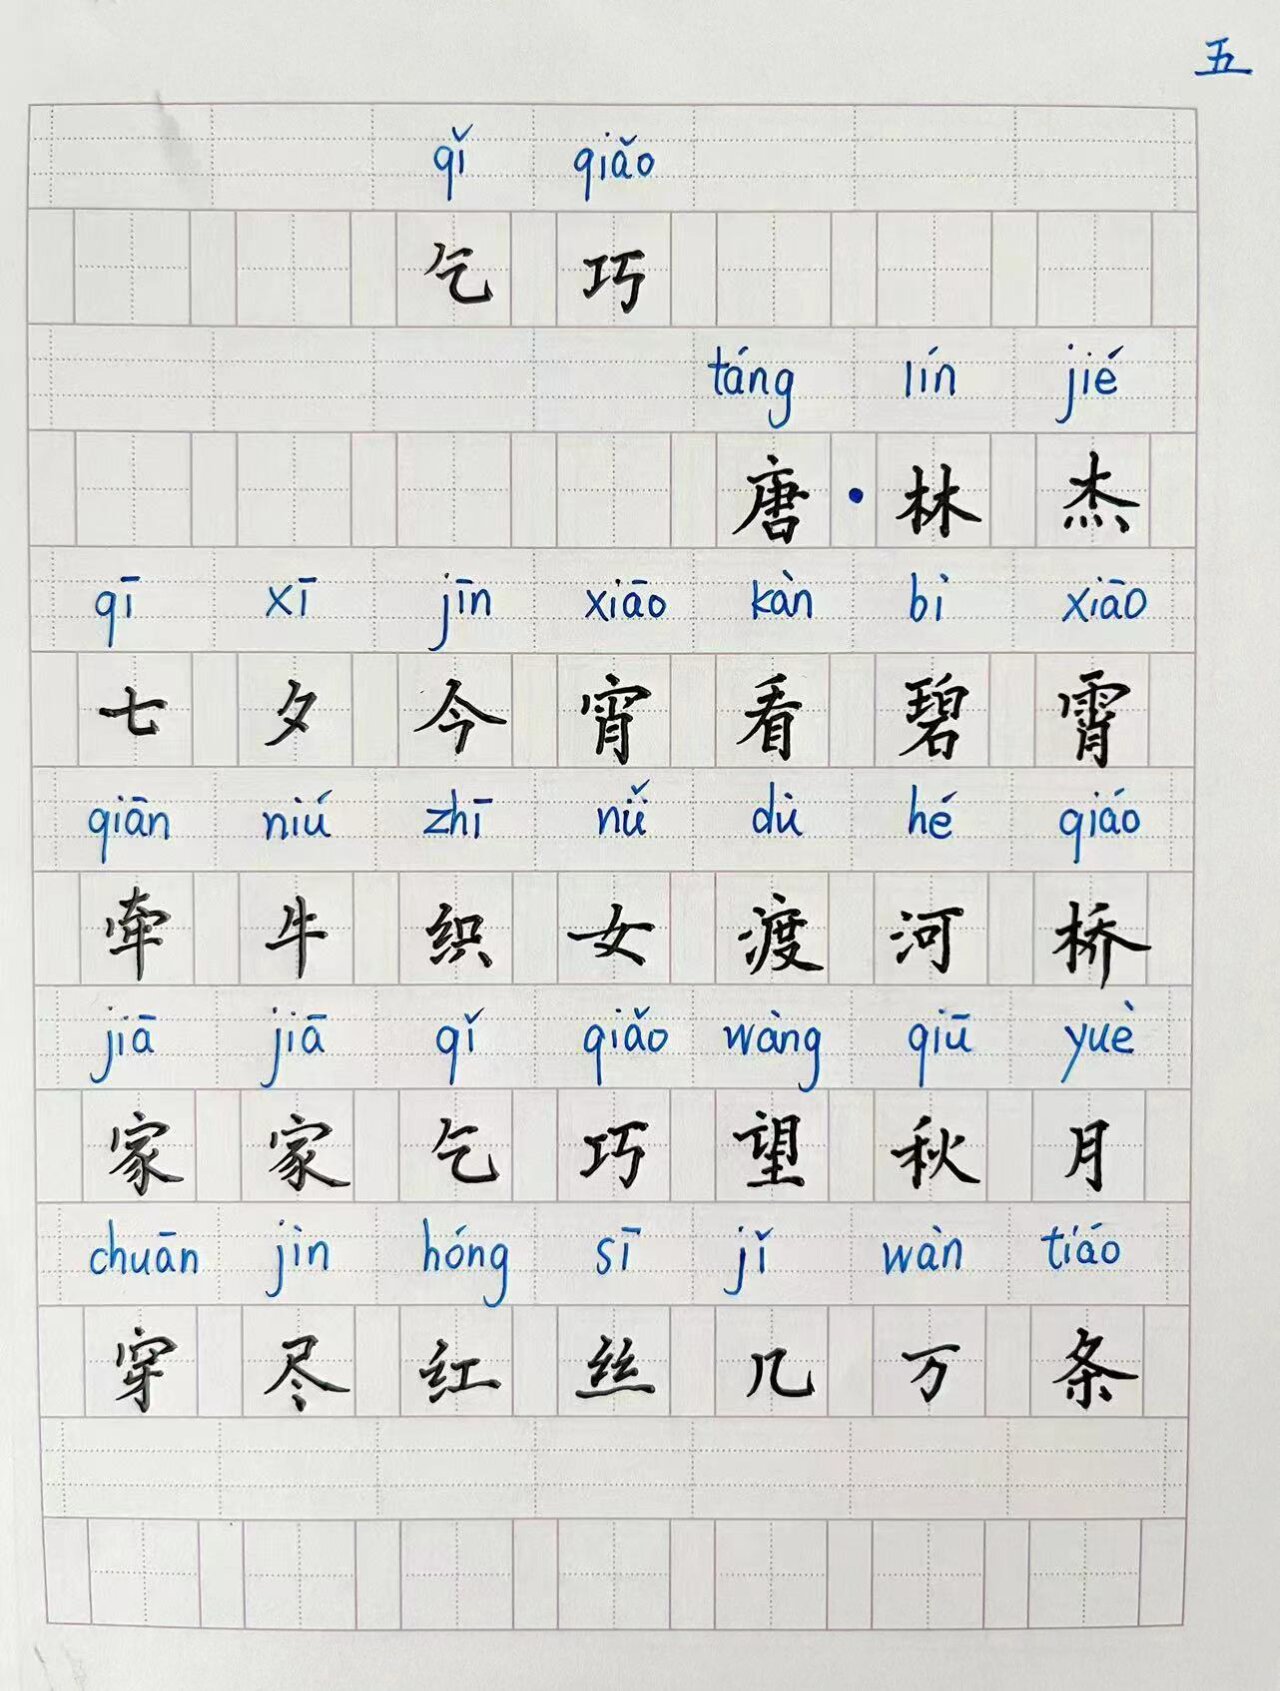 五
qǐ qiǎo
乞巧
táng lín jié
唐·林杰
qī xī jīn xiāo kàn bì xiāo
七夕今宵看碧霄
qiān niú zhī nǚ dù hé qiáo
牵牛织女渡河桥
jiā jiā qǐ qiǎo wàng qiū yuè
家家乞巧望秋月
chuān jìn hóng sī jǐ wàn tiáo
穿尽红丝几万条